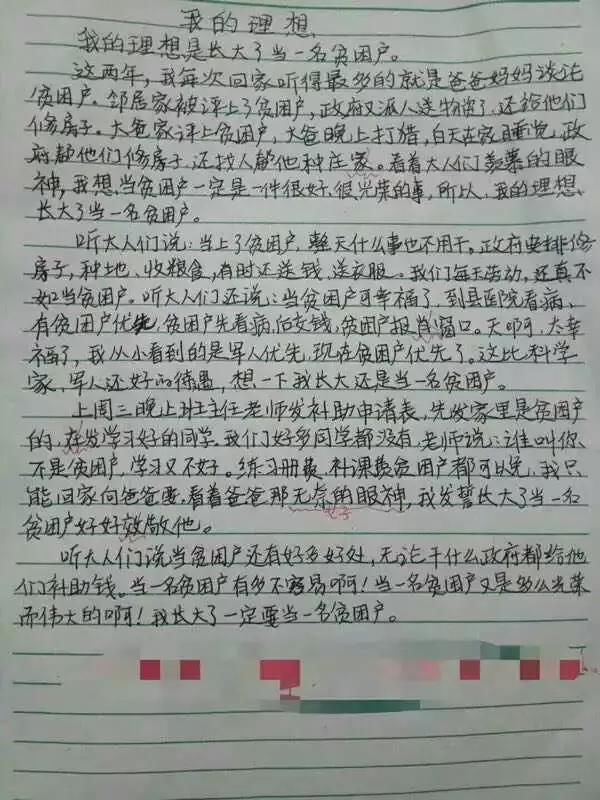 我的理想
我的理想是长大了当一名贫困户。
这两年，我每次回家听得最多的就是爸爸妈妈谈论
贫困户。邻居家被评上了贫困户，政府又派人送物资了，还给他们
修房子。大爸家评上贫困户，大爸晚上打猎，白天在家睡觉，政
府帮他们修房子，还找人帮他种庄家。看着大人们羡慕的眼
神，我想，当贫困户一定是一件很好、很光荣的事，所以，我的理想，
长大了当一名贫困户。
听大人们说：当上了贫困户，整天什么事也不用干。政府安排修
房子，种地、收粮食，有时还送钱、送衣服。我们每天劳动，还真不
如当贫困户。听大人们还说：当贫困户可幸福了，到县医院看病，
有贫困户优先，贫困户先看病，后交钱，贫困户报肖窗口。天啊，太幸
福了，我从小看到的是军人优先，现在贫困户优先了。这比科学
家、军人还好的待遇，想一下我长大还是当一名贫困户。
上周三晚上班主任老师发补助申请表，先发家里是贫困户
的，在发学习好的同学。我们好多同学都没有，老师说：谁叫你
不是贫困户，学习又不好。练习册费、补课费贫困户都可以免，我只
能回家向爸爸要，看着爸爸那无奈的眼神，我发誓长大了当一名
贫困户好好效敬他。
听大人们说当贫困户还有好多好处，无论干什么政府都给他
们补助钱。当一名贫困户有多不容易啊！当一名贫困户又是多么光荣
而伟大的啊！我长大了一定要当一名贫困户。